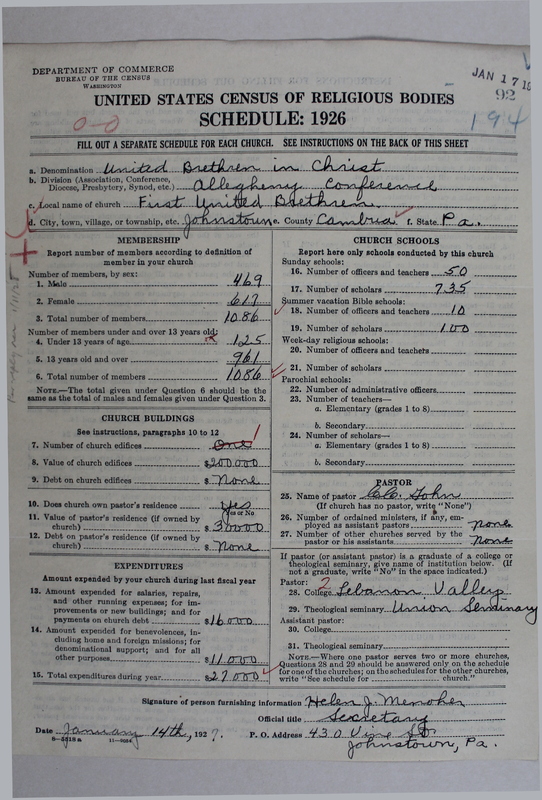 DEPARTMENT OF COMMERCE
BUREAU OF THE CENSUS
WASHINGTON
JAN 17 19
92
194
UNITED STATES CENSUS OF RELIGIOUS BODIES
SCHEDULE: 1926
0-0
FILL OUT A SEPARATE SCHEDULE FOR EACH CHURCH. SEE INSTRUCTIONS ON THE BACK OF THIS SHEET
a. Denomination United Brethren in Christ
b. Division (Association, Conference, Diocese, Presbytery, Synod, etc.) Allegheny Conference
c. Local name of church First United Brethren
d. City, town, village, or township, etc. Johnstown e. County Cambria f. State Pa.
MEMBERSHIP
Report number of members according to definition of member in your church
Number of members, by sex:
1. Male 469
2. Female 617
3. Total number of members 1086
Number of members under and over 13 years old:
4. Under 13 years of age 125
5. 13 years old and over 961
6. Total number of members 1086
NOTE.—The total given under Question 6 should be the same as the total of males and females given under Question 3.
CHURCH BUILDINGS
See instructions, paragraphs 10 to 12
7. Number of church edifices One 1
8. Value of church edifices $200000
9. Debt on church edifices $ None
10. Does church own pastor's residence Yes
Yes or No
11. Value of pastor's residence (if owned by church) $30000
12. Debt on pastor's residence (if owned by church) $ None
EXPENDITURES
Amount expended by your church during last fiscal year
13. Amount expended for salaries, repairs, and other running expenses; for improvements or new buildings; and for payments on church debt $16000
14. Amount expended for benevolences, including home and foreign missions; for denominational support; and for all other purposes $11000
15. Total expenditures during year $27000
CHURCH SCHOOLS
Report here only schools conducted by this church
Sunday schools:
16. Number of officers and teachers 50
17. Number of scholars 735
Summer vacation Bible schools:
18. Number of officers and teachers 10
19. Number of scholars 100
Week-day religious schools:
20. Number of officers and teachers
21. Number of scholars
Parochial schools:
22. Number of administrative officers
23. Number of teachers—
a. Elementary (grades 1 to 8)
b. Secondary
24. Number of scholars—
a. Elementary (grades 1 to 8)
b. Secondary
PASTOR
25. Name of pastor
(If church has no pastor, write "None")
26. Number of ordained ministers, if any, employed as assistant pastors None
27. Number of other churches served by the pastor or his assistants None
If pastor (or assistant pastor) is a graduate of a college or theological seminary, give name of institution below. (If not a graduate, write "No" in the space indicated.)
Pastor: 2
28. College Lebanon Valley
29. Theological seminary Union Seminary
Assistant pastor:
30. College
31. Theological seminary
NOTE.—Where one pastor serves two or more churches, Questions 28 and 29 should be answered only on the schedule for one of the churches; on the schedules for the other churches, write "See schedule for church."
Signature of person furnishing information Helen J. Menoher
Official title Secretary
Date January 14th, 1927. P. O. Address 430 Vine St.
8-5518a 11-9064 Johnstown, Pa.